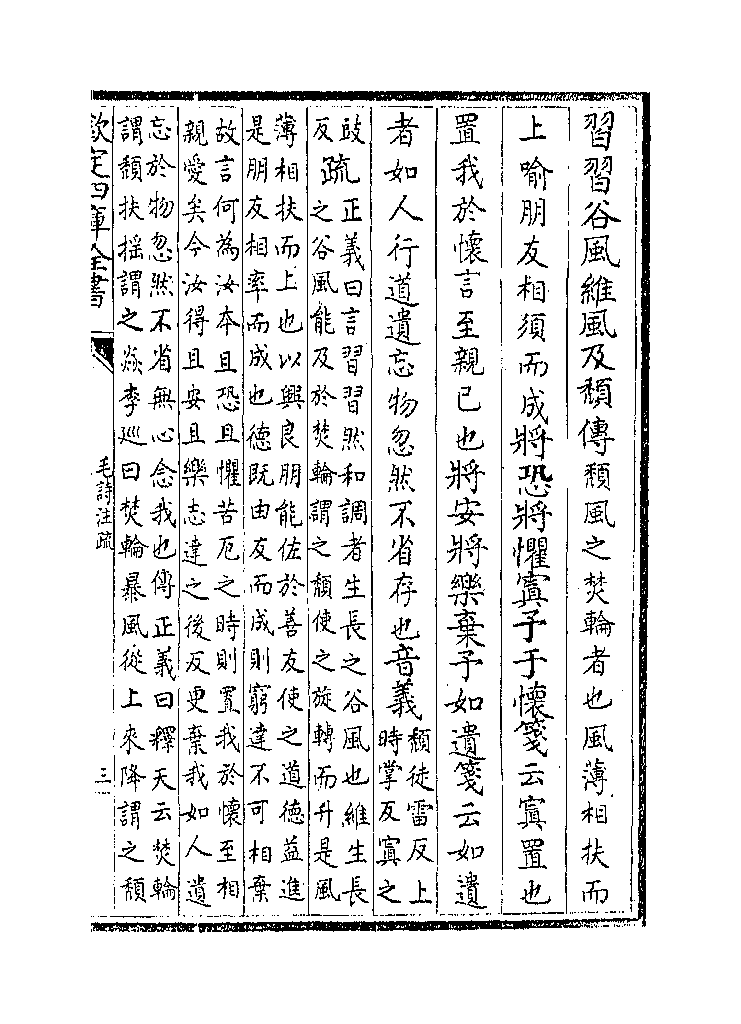 習習谷風維風及頽傳頽風之焚輪者也風薄相扶而
上喻朋友相須而成將恐將懼寘予于懷箋云寘置也
置我於懷言至親已也將安將樂棄予如遺箋云如遺
者如人行道遺忘物忽然不省存也音義
頽徒雷反上
時掌反寘之
䜴
反
疏
正義曰言習習然和調者生長之谷風也維生長
之谷風能及於焚輪謂之頽使之旋轉而升是風
薄相扶而上也以興良朋能佐於善友使之道德益進
是朋友相率而成也德既由友而成則窮達不可相棄
故言何為汝本且恐且懼苦厄之時則置我於懷至相
親愛矣今汝得且安且樂志達之後反更棄我如人遺
忘於物忽然不省無心念我也傳正義曰釋天云焚輪
謂頽扶揺謂之焱李廵曰焚輪暴風從上來降謂之頽
欽定四庫全書
毛詩注疏
三